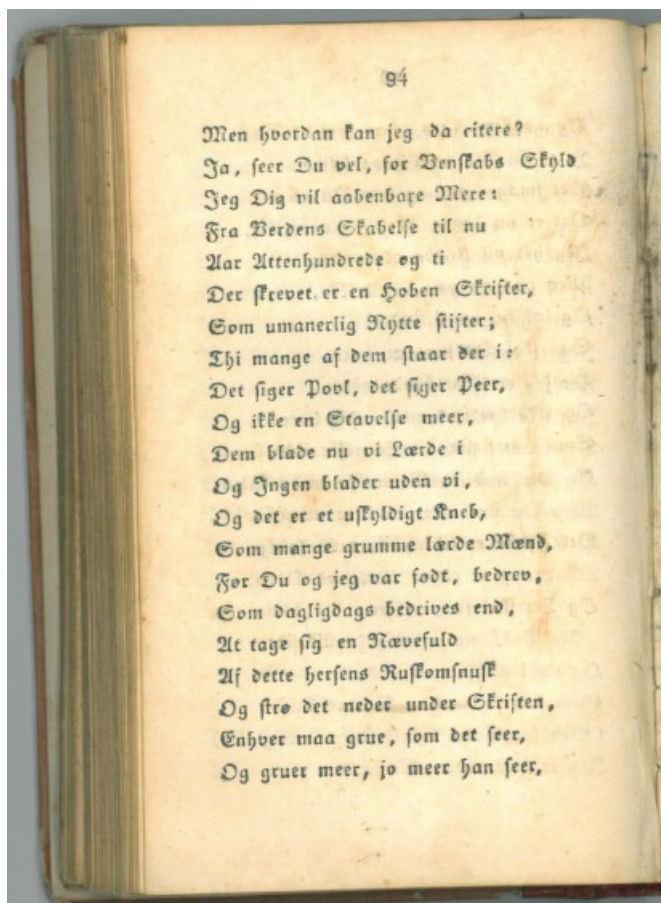 94
Men hvordan kan jeg da citere?
Ja, seer Du vel, for Venskabs Skyld
Jeg Dig vil aabenbare Mere:
Fra Verdens Skabelse til nu
Aar Attenhundrede og ti
Der skrevet er en Hoben Skrifter,
Som umanerlig Nytte stifter;
Thi mange af dem staar der i:
Det siger Povl, det siger Peer,
Og ikke en Stavelse meer,
Dem blade nu vi Lærde i
Og Ingen blader uden vi,
Og det er et uskyldigt Kneb,
Som mange grumme lærde Mænd,
Før Du og jeg var født, bedrev,
Som dagligdags bedrives end,
At tage sig en Nævefuld
Af dette hersens Ruskomsnusk
Og strø det neder under Skriften,
Enhver maa grue, som det seer,
Og gruer meer, jo meer han seer,